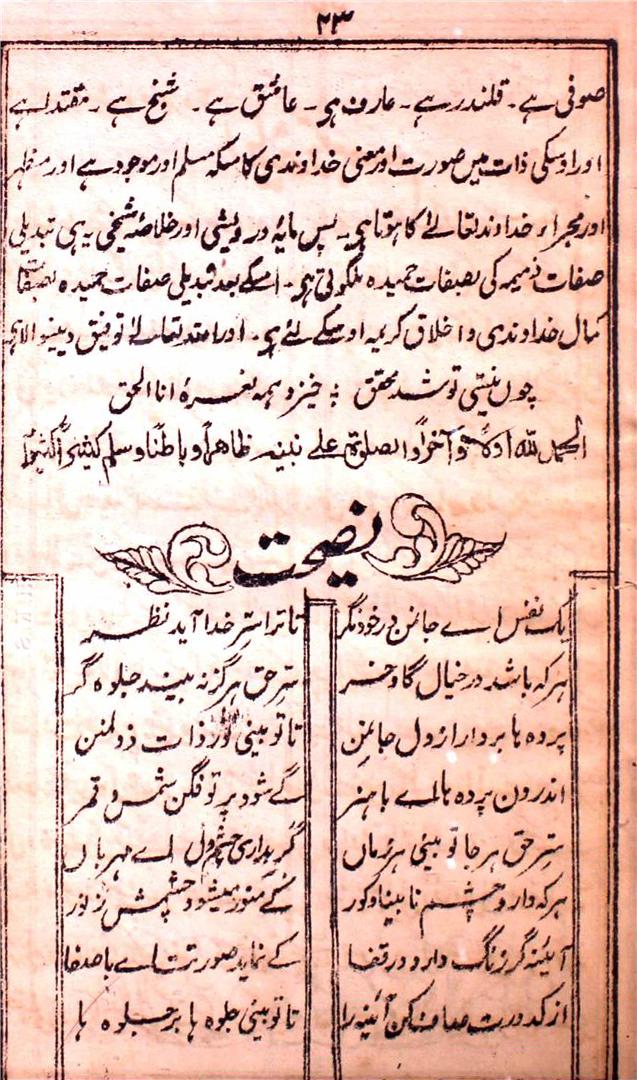 ۲۳
صوفی ہے۔ قلندر ہے۔ عارف ہی۔ عاشق ہے۔ شیخ ہے۔ مقتدا ہے
اور اوسکی ذات میں صورت اور معنی خداوندی کا سکہ مسلم اور موجود ہے اور مظہر
اور مجراء خداوند تعالےٰ کا ہوتا ہی۔ پس مایۂ درویشی اور خلاصۂ شیخی یہی تبدیلی
صفات ذمیمہ کی بصفات حمیدہ ملکوتی ہی۔ اسکے بعد تبدیلی صفات حمیدہ بصفات
کمال خداوندی و اخلاق کریمہ اوسکے لئے ہی۔ اور اللہ تعالےٰ توفیق دینیوالا ہی
چوں نیستی تو شد محقق ؛ خیزد ہمہ نعرۂ انا الحق
الحمد للہ اولاً وآخراً والصلوۃ علے نبیہ ظاھراً وباطناً وسلم کثیراً کثیراً
نصیحت
یک نفس اے جانمن در خود نگر تا ترا سرّ خدا آید نظر
ہر کہ باشد در خیال گاو خر سرّ حق ہرگز نہ بیند جلوہ گر
پردہ ہا بردار از دل جانمن تا تو بینی نور ذات ذو المنن
اندرون پردہ ہائے با ہنر کے شود پرتو فگن شمس و قمر
سرّ حق ہر جا تو بینی ہر زماں گر بداری چشم دل اے مہرباں
ہر کہ دارد چشم نابینا و کور کے منور میشود چشمش ز نور
آئینہ گر زنگ دارد در قفا کے نماید صورتت اے با صفا
از کدورت صاف کن آئینہ را تا تو بینی جلوہ ہا بر جلوہ ہا